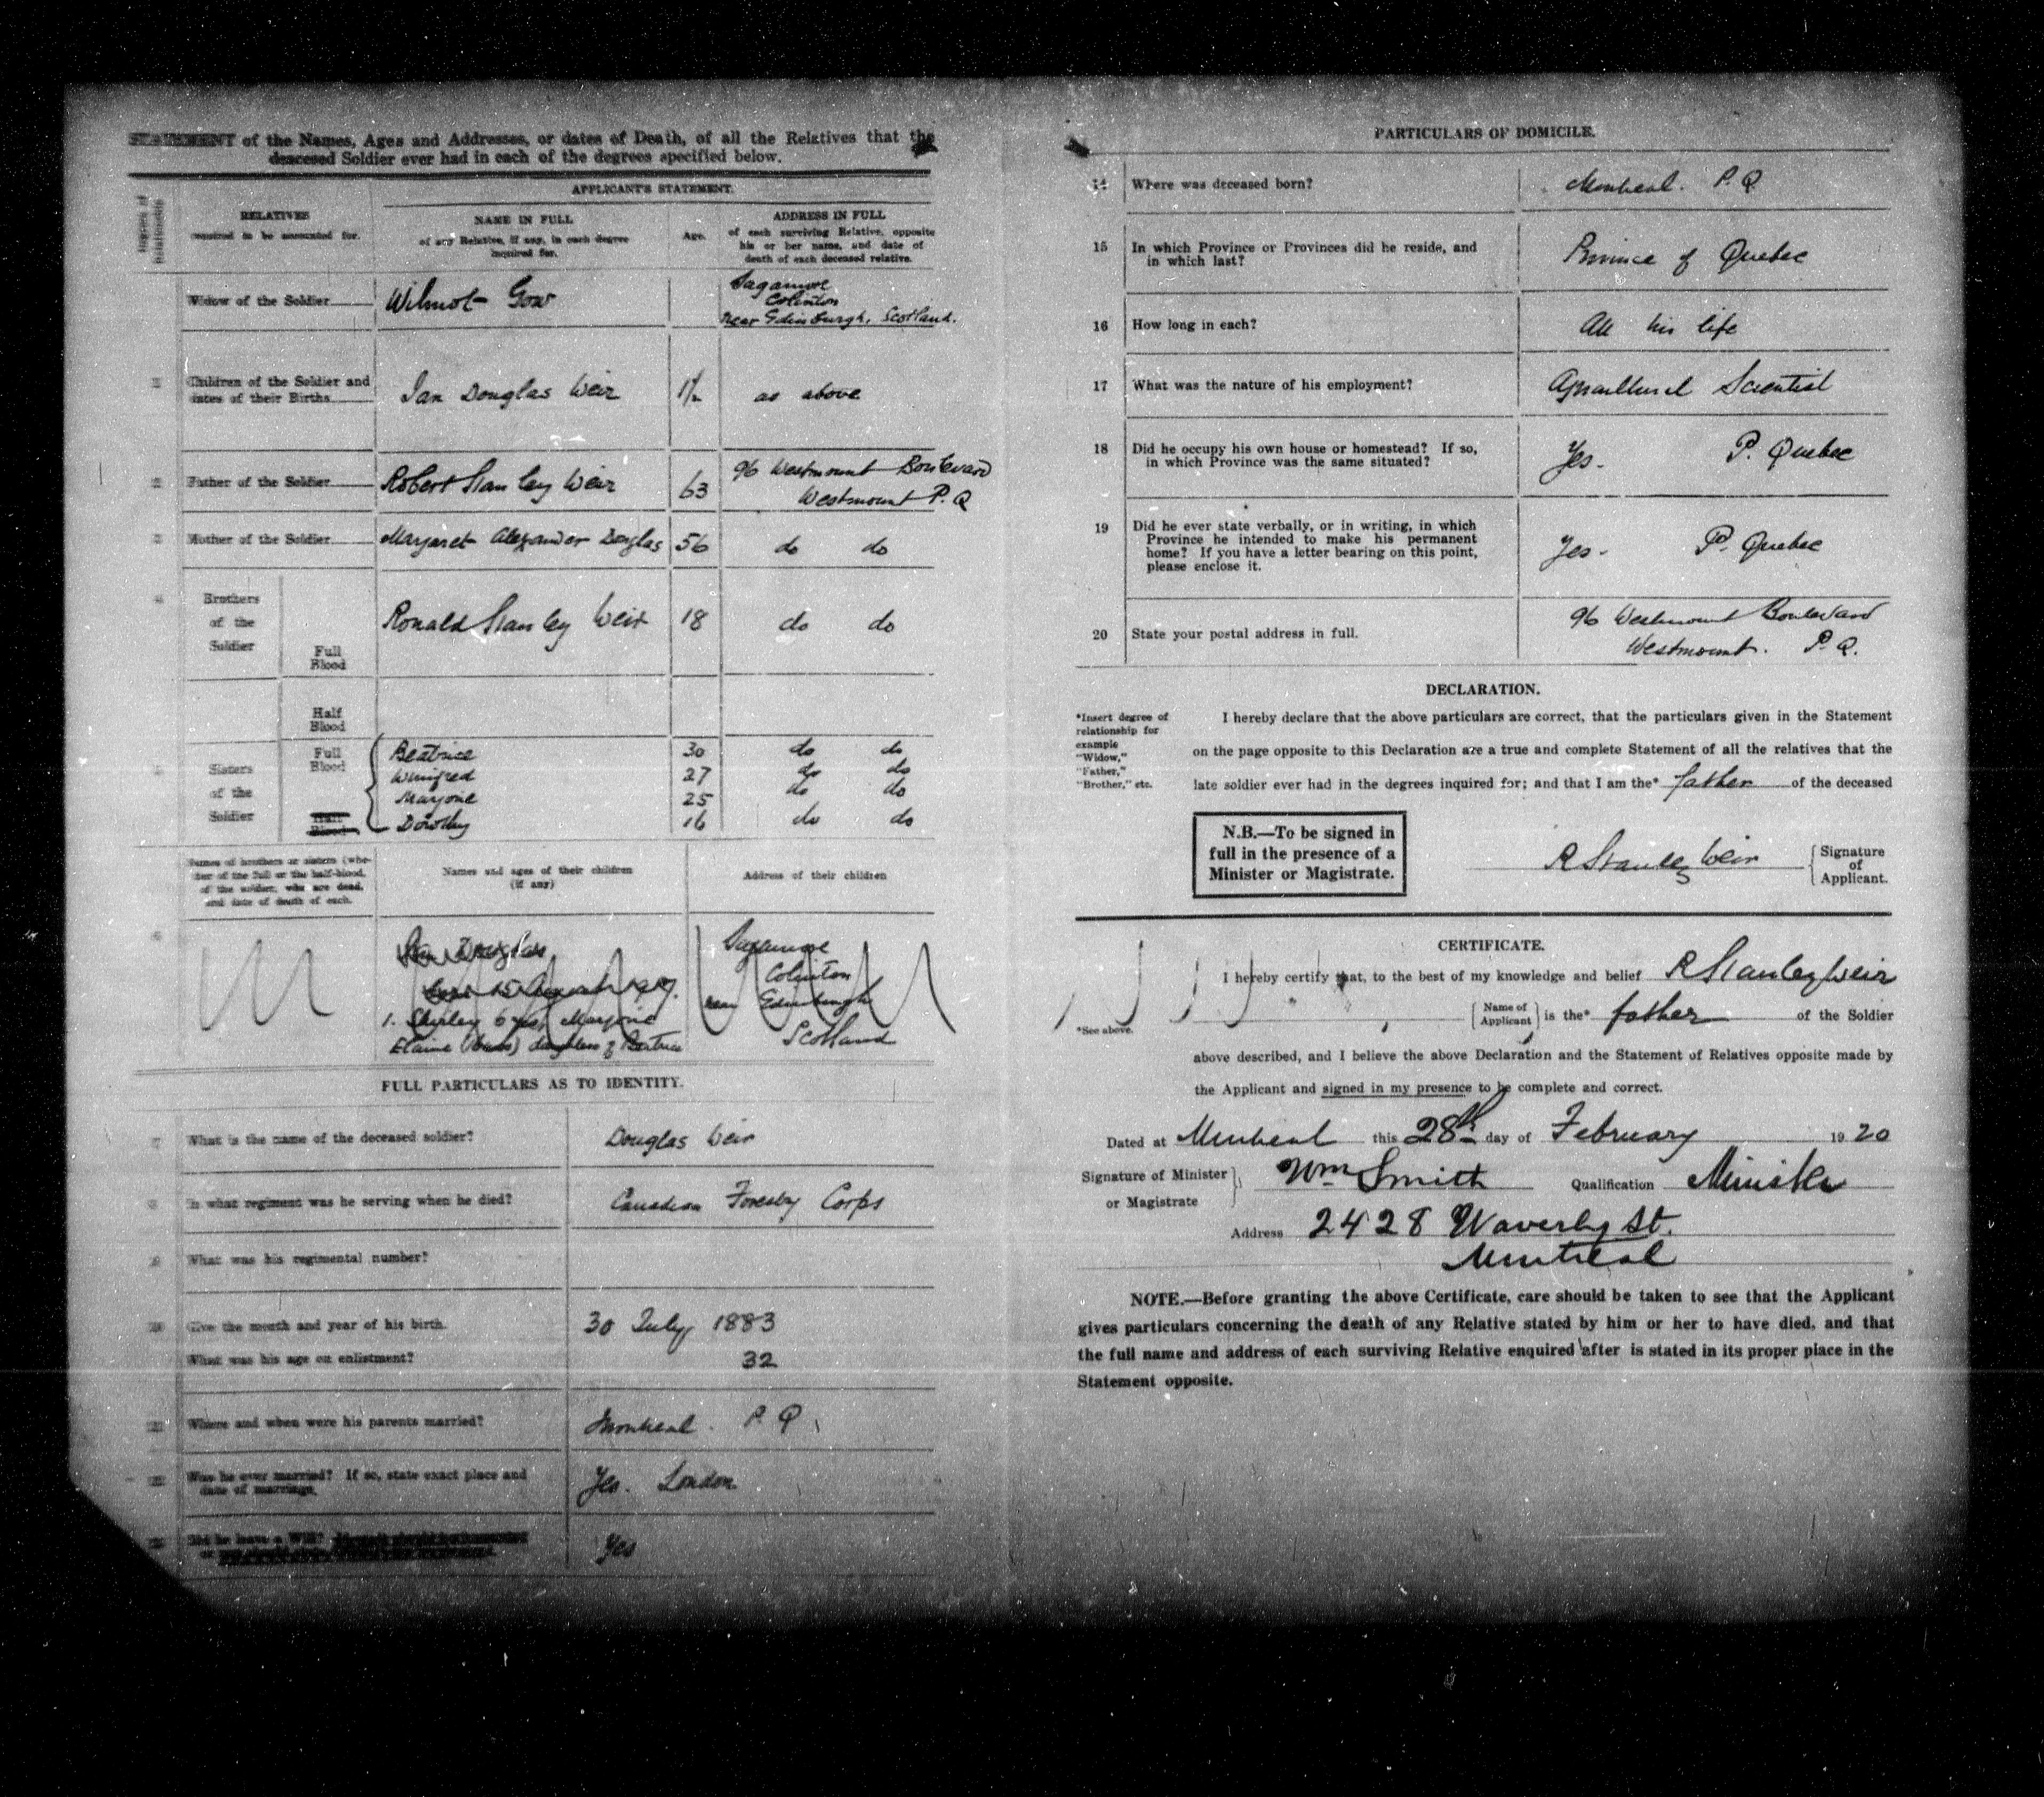 STATEMENT of the Names, Ages and Addresses, or dates of Death, of all the Relatives that the
deceased Soldier ever had in each of the degrees specified below.
Degrees of Relationship
APPLICANT'S STATEMENT.
RELATIVES
required to be accounted for.
NAME IN FULL
of any Relative, if any, in each degree
inquired for.
Age.
ADDRESS IN FULL
of each surviving Relative, opposite
his or her name, and date of
death of each deceased relative.
Widow of the Soldier
Wilmot Gow
Sagamore
Colinton
near Edinburgh, Scotland.
1 Children of the Soldier and
dates of their Births
Ian Douglas Weir 1½ as above
2 Father of the Soldier
Robert Stanley Weir 63 96 Westmount Boulevard
Westmount P.Q
3 Mother of the Soldier
Margaret Alexander Douglas 56 do do
4 Brothers
of the
Soldier
Full
Blood
Ronald Stanley Weir 18 do do
Half
Blood
5 Sisters
of the
Soldier
Full
Blood
Beatrice 30 do do
Winifred 27 do do
Marjorie 25 do do
Dorothy 16 do do
Half
Blood
Names of brothers or sisters (whe-
ther of the full or the half-blood,
of the soldier, who are dead,
and date of death of each.
Names and ages of their children
(if any)
Address of their children
6
Ian Douglas
1. Shirley 6 yrs, Marjorie
Elaine daughters of Beatrice
Sagamore
Colinton
near Edinburgh
Scotland
FULL PARTICULARS AS TO IDENTITY.
7 What is the name of the deceased soldier? Douglas Weir
8 In what regiment was he serving when he died? Canadian Forestry Corps
9 What was his regimental number?
10 Give the month and year of his birth. 30 July 1883
What was his age on enlistment? 32
11 Where and when were his parents married? Montreal. P.Q.
12 Was he ever married? If so, state exact place and
date of marriage.
Yes. London
13 Did he leave a Will?
Yes
PARTICULARS OF DOMICILE.
14 Where was deceased born? Montreal. P.Q
15 In which Province or Provinces did he reside, and
in which last?
Province of Quebec
16 How long in each? All his life
17 What was the nature of his employment? Agricultural Scientist
18 Did he occupy his own house or homestead? If so,
in which Province was the same situated?
Yes- P. Quebec
19 Did he ever state verbally, or in writing, in which
Province he intended to make his permanent
home? If you have a letter bearing on this point,
please enclose it.
Yes- P. Quebec
20 State your postal address in full.
96 Westmount Boulevard
Westmount. P.Q.
DECLARATION.
*Insert degree of
relationship for
example
"Widow,"
"Father,"
"Brother," etc.
I hereby declare that the above particulars are correct, that the particulars given in the Statement
on the page opposite to this Declaration are a true and complete Statement of all the relatives that the
late soldier ever had in the degrees inquired for; and that I am the* father of the deceased
N.B.—To be signed in
full in the presence of a
Minister or Magistrate.
R Stanley Weir
Signature
of
Applicant.
CERTIFICATE.
I hereby certify that, to the best of my knowledge and belief R Stanley Weir
*See above.
Name of
Applicant
is the* father of the Soldier
above described, and I believe the above Declaration and the Statement of Relatives opposite made by
the Applicant and signed in my presence to be complete and correct.
Dated at Montreal this 28th day of February 1920
Signature of Minister
or Magistrate
Wm Smith Qualification Minister
Address 2428 Waverly St.
Montreal
NOTE.—Before granting the above Certificate, care should be taken to see that the Applicant
gives particulars concerning the death of any Relative stated by him or her to have died, and that
the full name and address of each surviving Relative enquired after is stated in its proper place in the
Statement opposite.